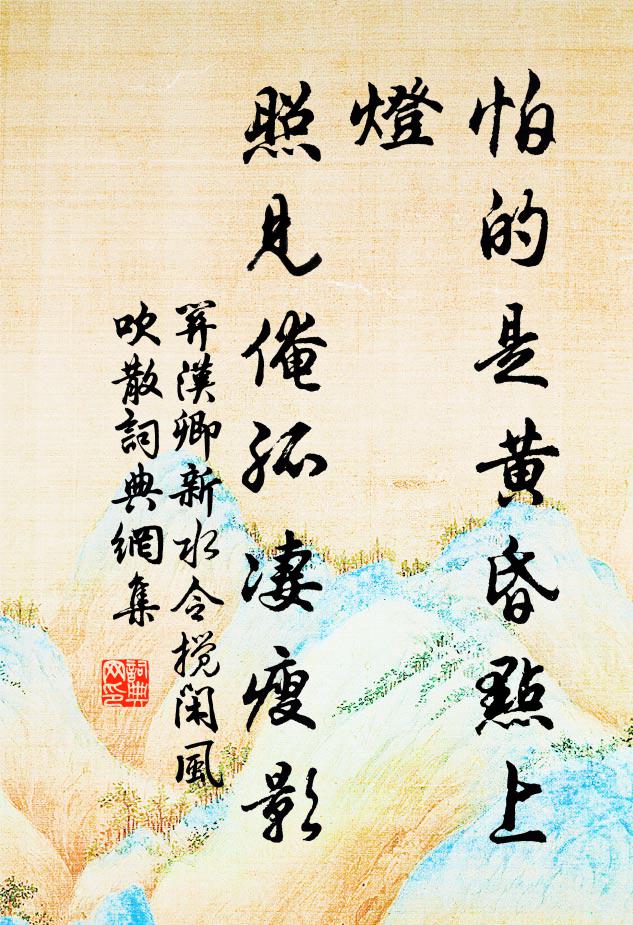 怕的是黄昏點上
燈
照見俺孤凄瘦影
関漢卿新水令攪閑風
吹散詞典網集
詞典網印